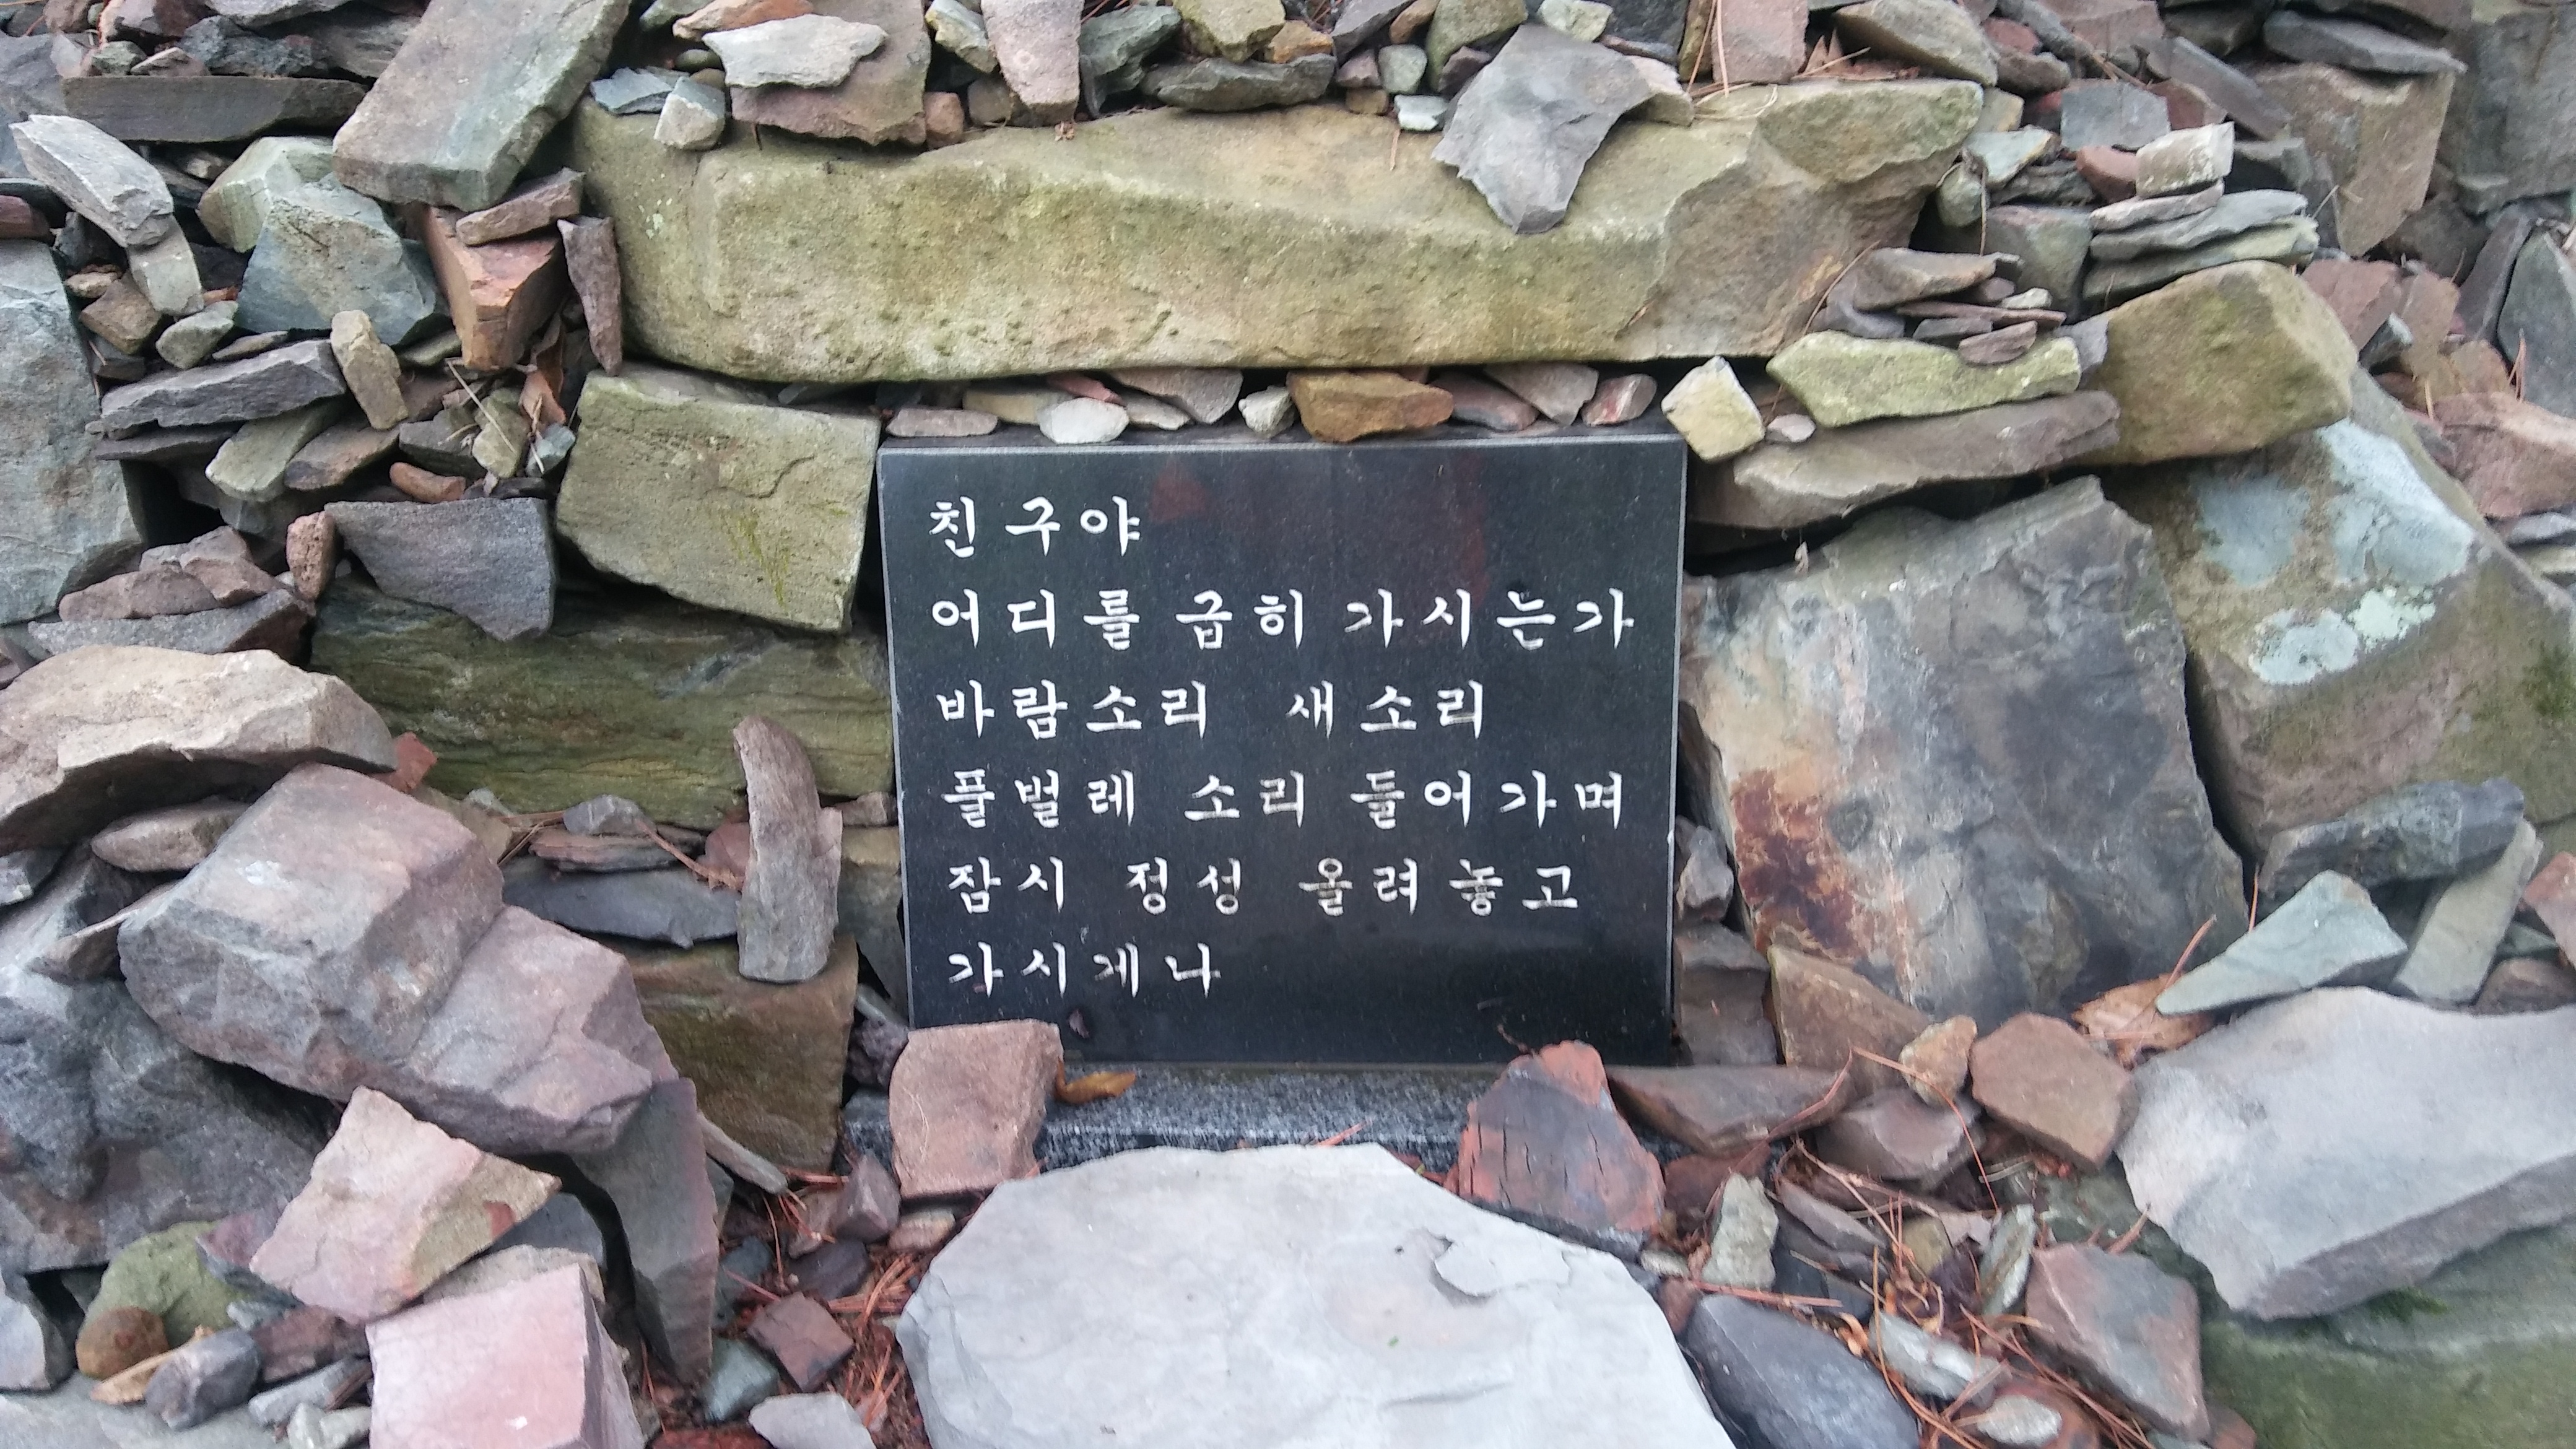 친구야
어디를 급히 가시는가
바람소리 새소리
풀벌레 소리 들어가며
잠시 정성 올려놓고
가시게나